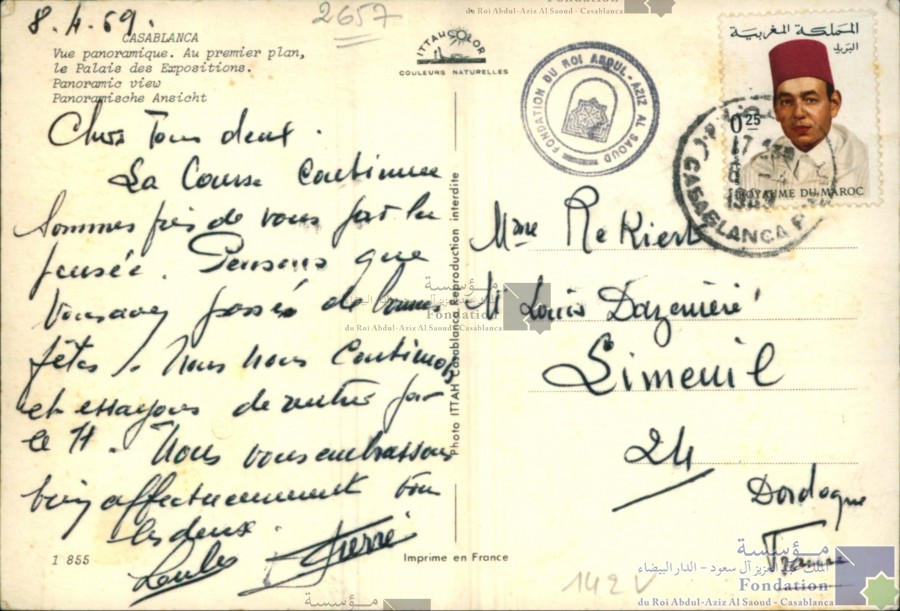 8.4.69.
2657
CASABLANCA
Vue panoramique. Au premier plan,
le Palais des Expositions.
Panoramic view
Panoramische Ansicht
ITTAHCOLOR
COULEURS NATURELLES
FONDATION DU ROI ABDUL-AZIZ AL SAOUD
المملكة المغربية
البريد
0.25
ROYAUME DU MAROC
CASABLANCA
Chers Tous deux.
La Course Continue
Sommes près de vous par la
pensée. Pensons que
Vous avez passés de bonnes
fêtes. Nous nous Continuons
et essayons de rentrer par
le H. Nous vous embrassons
bien affectueusement tous
les deux.
Loulou Pierre
Mme
Mr Louis
Limeuil
24
Dordogne
France
Photo ITTAH Casablanca Reproduction interdite
1 855
Imprime en France
142V
مؤسسة
الملك عبد العزيز آل سعود - الدار البيضاء
Fondation
du Roi Abdul-Aziz Al Saoud - Casablanca